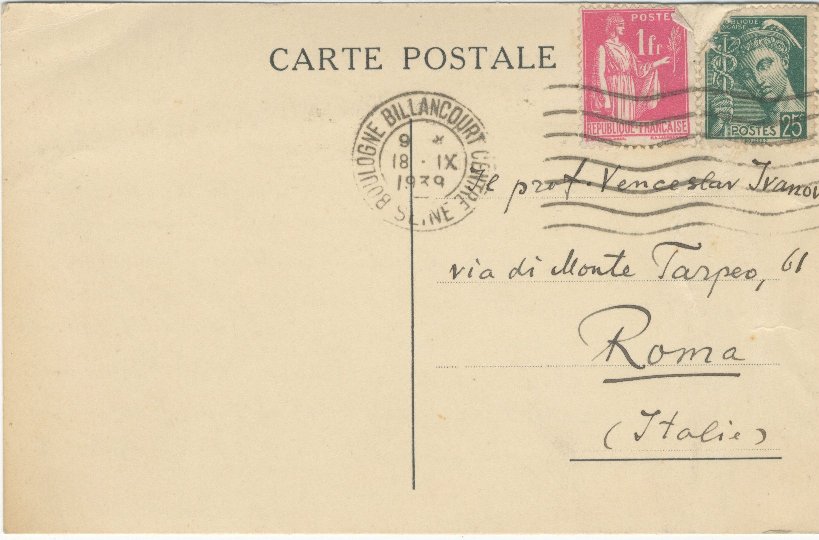 CARTE POSTALE
POSTES
1fr
REPUBLIQUE FRANÇAISE
POSTES 25
BOULOGNE BILLANCOURT CENTRE
9 *
18 - IX
1939
SEINE
prof. Venceslav Ivanov
via di Monte Tarpeo, 61
Roma
(Italie)